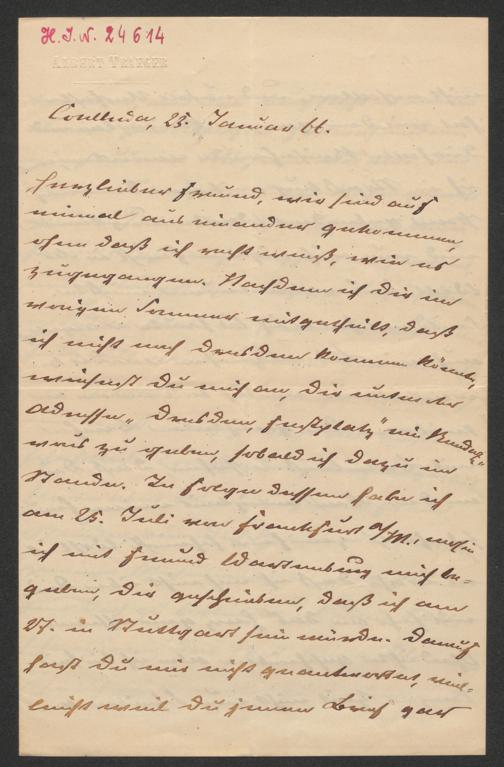 H.I.N. 24614
ALBERT TRAEGER
Coelleda, 25. Januar 66.
Herzlieber Freund, wir sind auf
einmal aus einander gekommen,
ohne daß ich recht weiß, wie es
zugegangen. Nachdem ich Dir im
vorigen Sommer mitgetheilt, daß
ich nicht nach Dresden kommen könnte,
wiesest Du mich an, Dir unter der
Adresse „Dresden, Festplatz“ ein
was zu geben, sobald ich dazu im
Stande. In Folge dessen habe ich
am 25. Juli von Frankfurt a/M., wohin
ich mit Freund Wartenburg mich be-
geben, Dir geschrieben, daß ich am
27. in Stuttgart sein würde. Darauf
hast Du mir nicht geantwortet, viel-
leicht weil Du jenen Brief gar